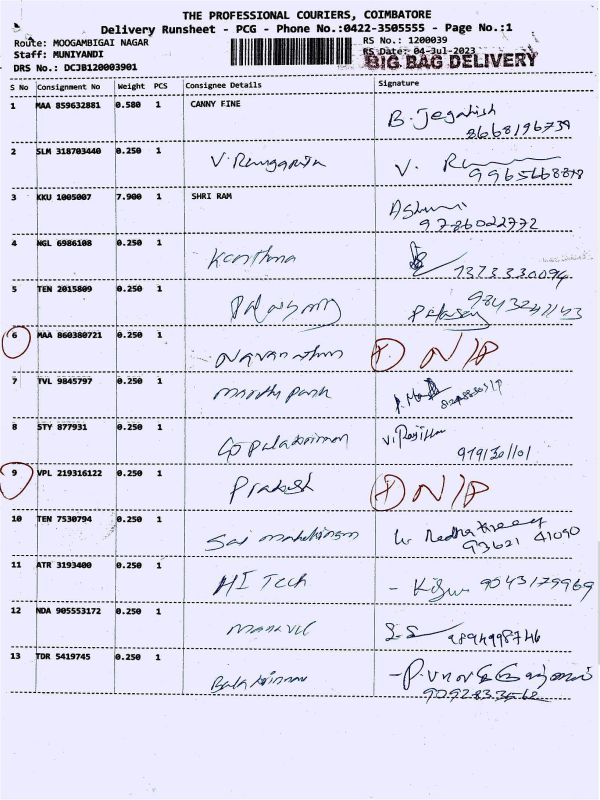 THE PROFESSIONAL COURIERS, COIMBATORE
Delivery Runsheet - PCG - Phone No.:0422-3505555 - Page No.:1
Route: MOOGAMBIGAI NAGAR RS No.: 1200039
Staff: MUNIYANDI RS Date: 04-Jul-2023
DRS No.: DCJB120003901 BIG BAG DELIVERY
S No Consignment No Weight PCS Consignee Details Signature
1 MAA 859632881 0.580 1 CANNY FINE B. Jegathish
8668196739
2 SLM 318703440 0.250 1 V. Rengarajan V.
3 KKU 1005007 7.900 1 SHRI RAM
9786022772
4 NGL 6986108 0.250 1
7373330094
5 TEN 2015809 0.250 1
6 MAA 860380721 0.250 1 N/P
7 TVL 9845797 0.250 1
8 STY 877931 0.250 1 Gopalakrishnan
9 VPL 219316122 0.250 1 Prakash N/P
10 TEN 7530794 0.250 1 Sai
93621 41090
11 ATR 3193400 0.250 1 HI Tech 9043179969
12 NDA 905553172 0.250 1 S.S 9894998746
13 TDR 5419745 0.250 1
9092833562